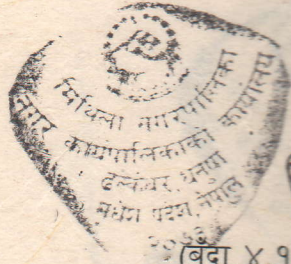 मिथिला नगरपालिका
नगर कार्यपालिकाको कार्यालय
ढल्केवर, धनुषा
मधेश प्रदेश, नेपाल
२०७३